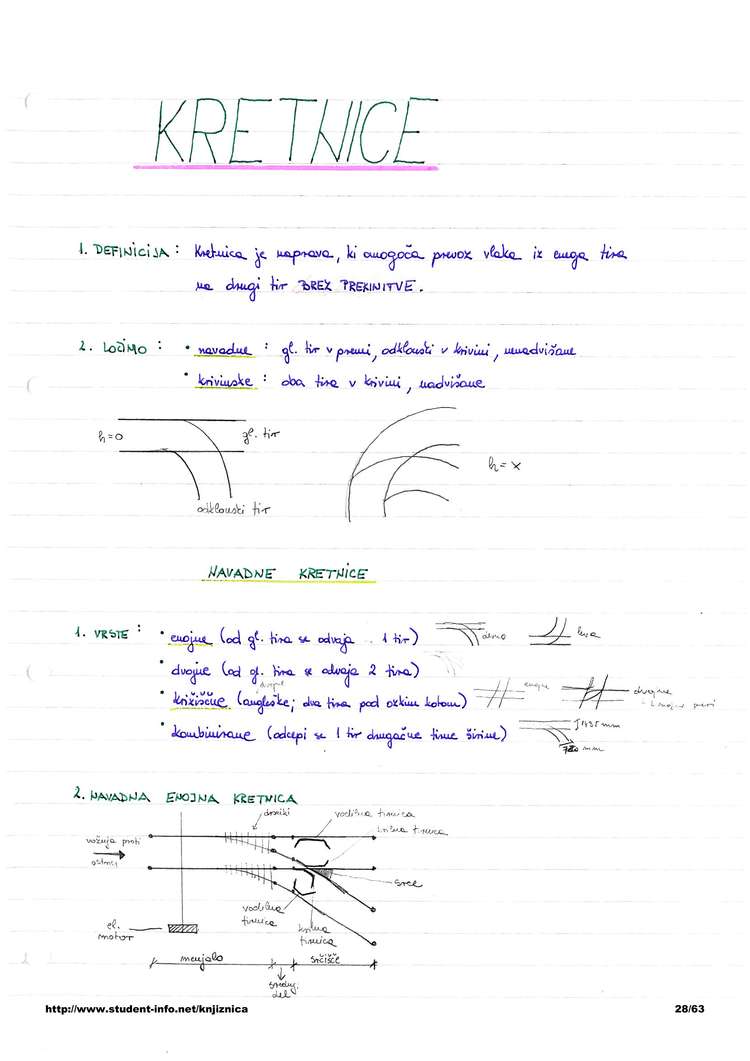 KRETNICE
1. DEFINICIJA : Kretnica je naprava, ki omogoča prevoz vlaka iz enega tira
na drugi tir BREZ PREKINITVE.
2. LOČIMO : • navadne : gl. tir v premi, odklonski v krivini, nenadvišane
• krivinske : oba tira v krivini, nadvišane
h=0
gl. tir
h=x
odklonski tir
NAVADNE KRETNICE
1. VRSTE : • enojne (od gl. tira se odvaja 1 tir)
desno
leva
• dvojne (od gl. tira se odvaja 2 tira)
• križiščne (angleške; dva tira pod ozkim kotom)
enojne
dvojne
• kombinirane (odcepi se 1 tir drugačne tirne širine)
1435 mm
760 mm
2. NAVADNA ENOJNA KRETNICA
drsniki
vodilna tirnica
krilna tirnica
vožnja proti
ostnici
srce
vodilna
tirnica
krilna
tirnica
el.
motor
menjalo
srčišče
srednji
del
http://www.student-info.net/knjiznica
28/63